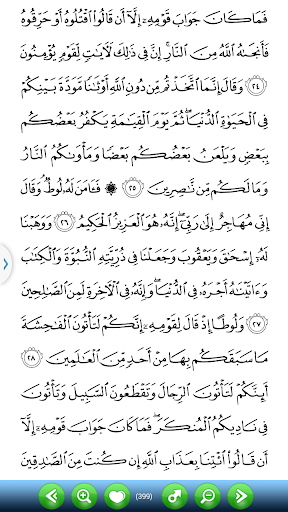 فَمَا كَانَ جَوَابَ قَوْمِهِۦٓ إِلَّآ أَن قَالُوا۟ ٱقْتُلُوهُ أَوْ حَرِّقُوهُ
فَأَنجَىٰهُ ٱللَّهُ مِنَ ٱلنَّارِ ۚ إِنَّ فِى ذَٰلِكَ لَـَٔايَـٰتٍ لِّقَوْمٍ يُؤْمِنُونَ
٢٤ وَقَالَ إِنَّمَا ٱتَّخَذْتُم مِّن دُونِ ٱللَّهِ أَوْثَـٰنًا مَّوَدَّةَ بَيْنِكُمْ
فِى ٱلْحَيَوٰةِ ٱلدُّنْيَا ۖ ثُمَّ يَوْمَ ٱلْقِيَـٰمَةِ يَكْفُرُ بَعْضُكُم
بِبَعْضٍ وَيَلْعَنُ بَعْضُكُم بَعْضًا وَمَأْوَىٰكُمُ ٱلنَّارُ
وَمَا لَكُم مِّن نَّـٰصِرِينَ ٢٥ ۞ فَـَٔامَنَ لَهُۥ لُوطٌ ۘ وَقَالَ
إِنِّى مُهَاجِرٌ إِلَىٰ رَبِّىٓ ۖ إِنَّهُۥ هُوَ ٱلْعَزِيزُ ٱلْحَكِيمُ ٢٦ وَوَهَبْنَا
لَهُۥٓ إِسْحَـٰقَ وَيَعْقُوبَ وَجَعَلْنَا فِى ذُرِّيَّتِهِ ٱلنُّبُوَّةَ وَٱلْكِتَـٰبَ
وَءَاتَيْنَـٰهُ أَجْرَهُۥ فِى ٱلدُّنْيَا ۖ وَإِنَّهُۥ فِى ٱلْـَٔاخِرَةِ لَمِنَ ٱلصَّـٰلِحِينَ
٢٧ وَلُوطًا إِذْ قَالَ لِقَوْمِهِۦٓ إِنَّكُمْ لَتَأْتُونَ ٱلْفَـٰحِشَةَ
مَا سَبَقَكُم بِهَا مِنْ أَحَدٍ مِّنَ ٱلْعَـٰلَمِينَ ٢٨
أَئِنَّكُمْ لَتَأْتُونَ ٱلرِّجَالَ وَتَقْطَعُونَ ٱلسَّبِيلَ وَتَأْتُونَ
فِى نَادِيكُمُ ٱلْمُنكَرَ ۖ فَمَا كَانَ جَوَابَ قَوْمِهِۦٓ إِلَّآ
أَن قَالُوا۟ ٱئْتِنَا بِعَذَابِ ٱللَّهِ إِن كُنتَ مِنَ ٱلصَّـٰدِقِينَ
(399)